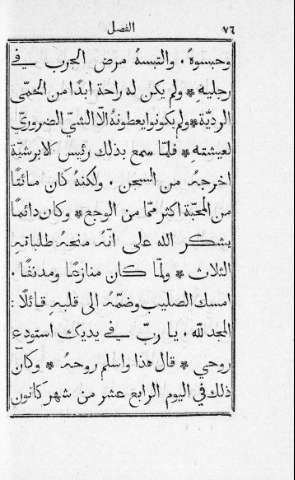 ٧٦ الفصل
وحبسوهُ. والتبسهُ مرض الجرب في
رجليهِ * ولم يكن له راحة ابدًا من الحمّى
الرديّة * ولم يكونوا يعطونهُ الّا الشي الضروري
لعيشتهِ * فلمّا سمع بذلك رئيس كلابرشيّة
اخرجهُ من السجن. ولكنهُ كان مائتًا
من المحبّة اكثر ممّا من الوجع * وكان دائمًا
يشكر الله على انّهُ منحهُ طلباتهِ
الثلاث * ولمّا كان منازعًا ومدنفًا.
امسك الصليب وضمّهُ الى قلبهِ قائلًا:
المجد لله. يا ربّ في يديك استودع
روحي * قال هذا واسلم روحهُ * وكان
ذلك في اليوم الرابع عشر من شهر كانون